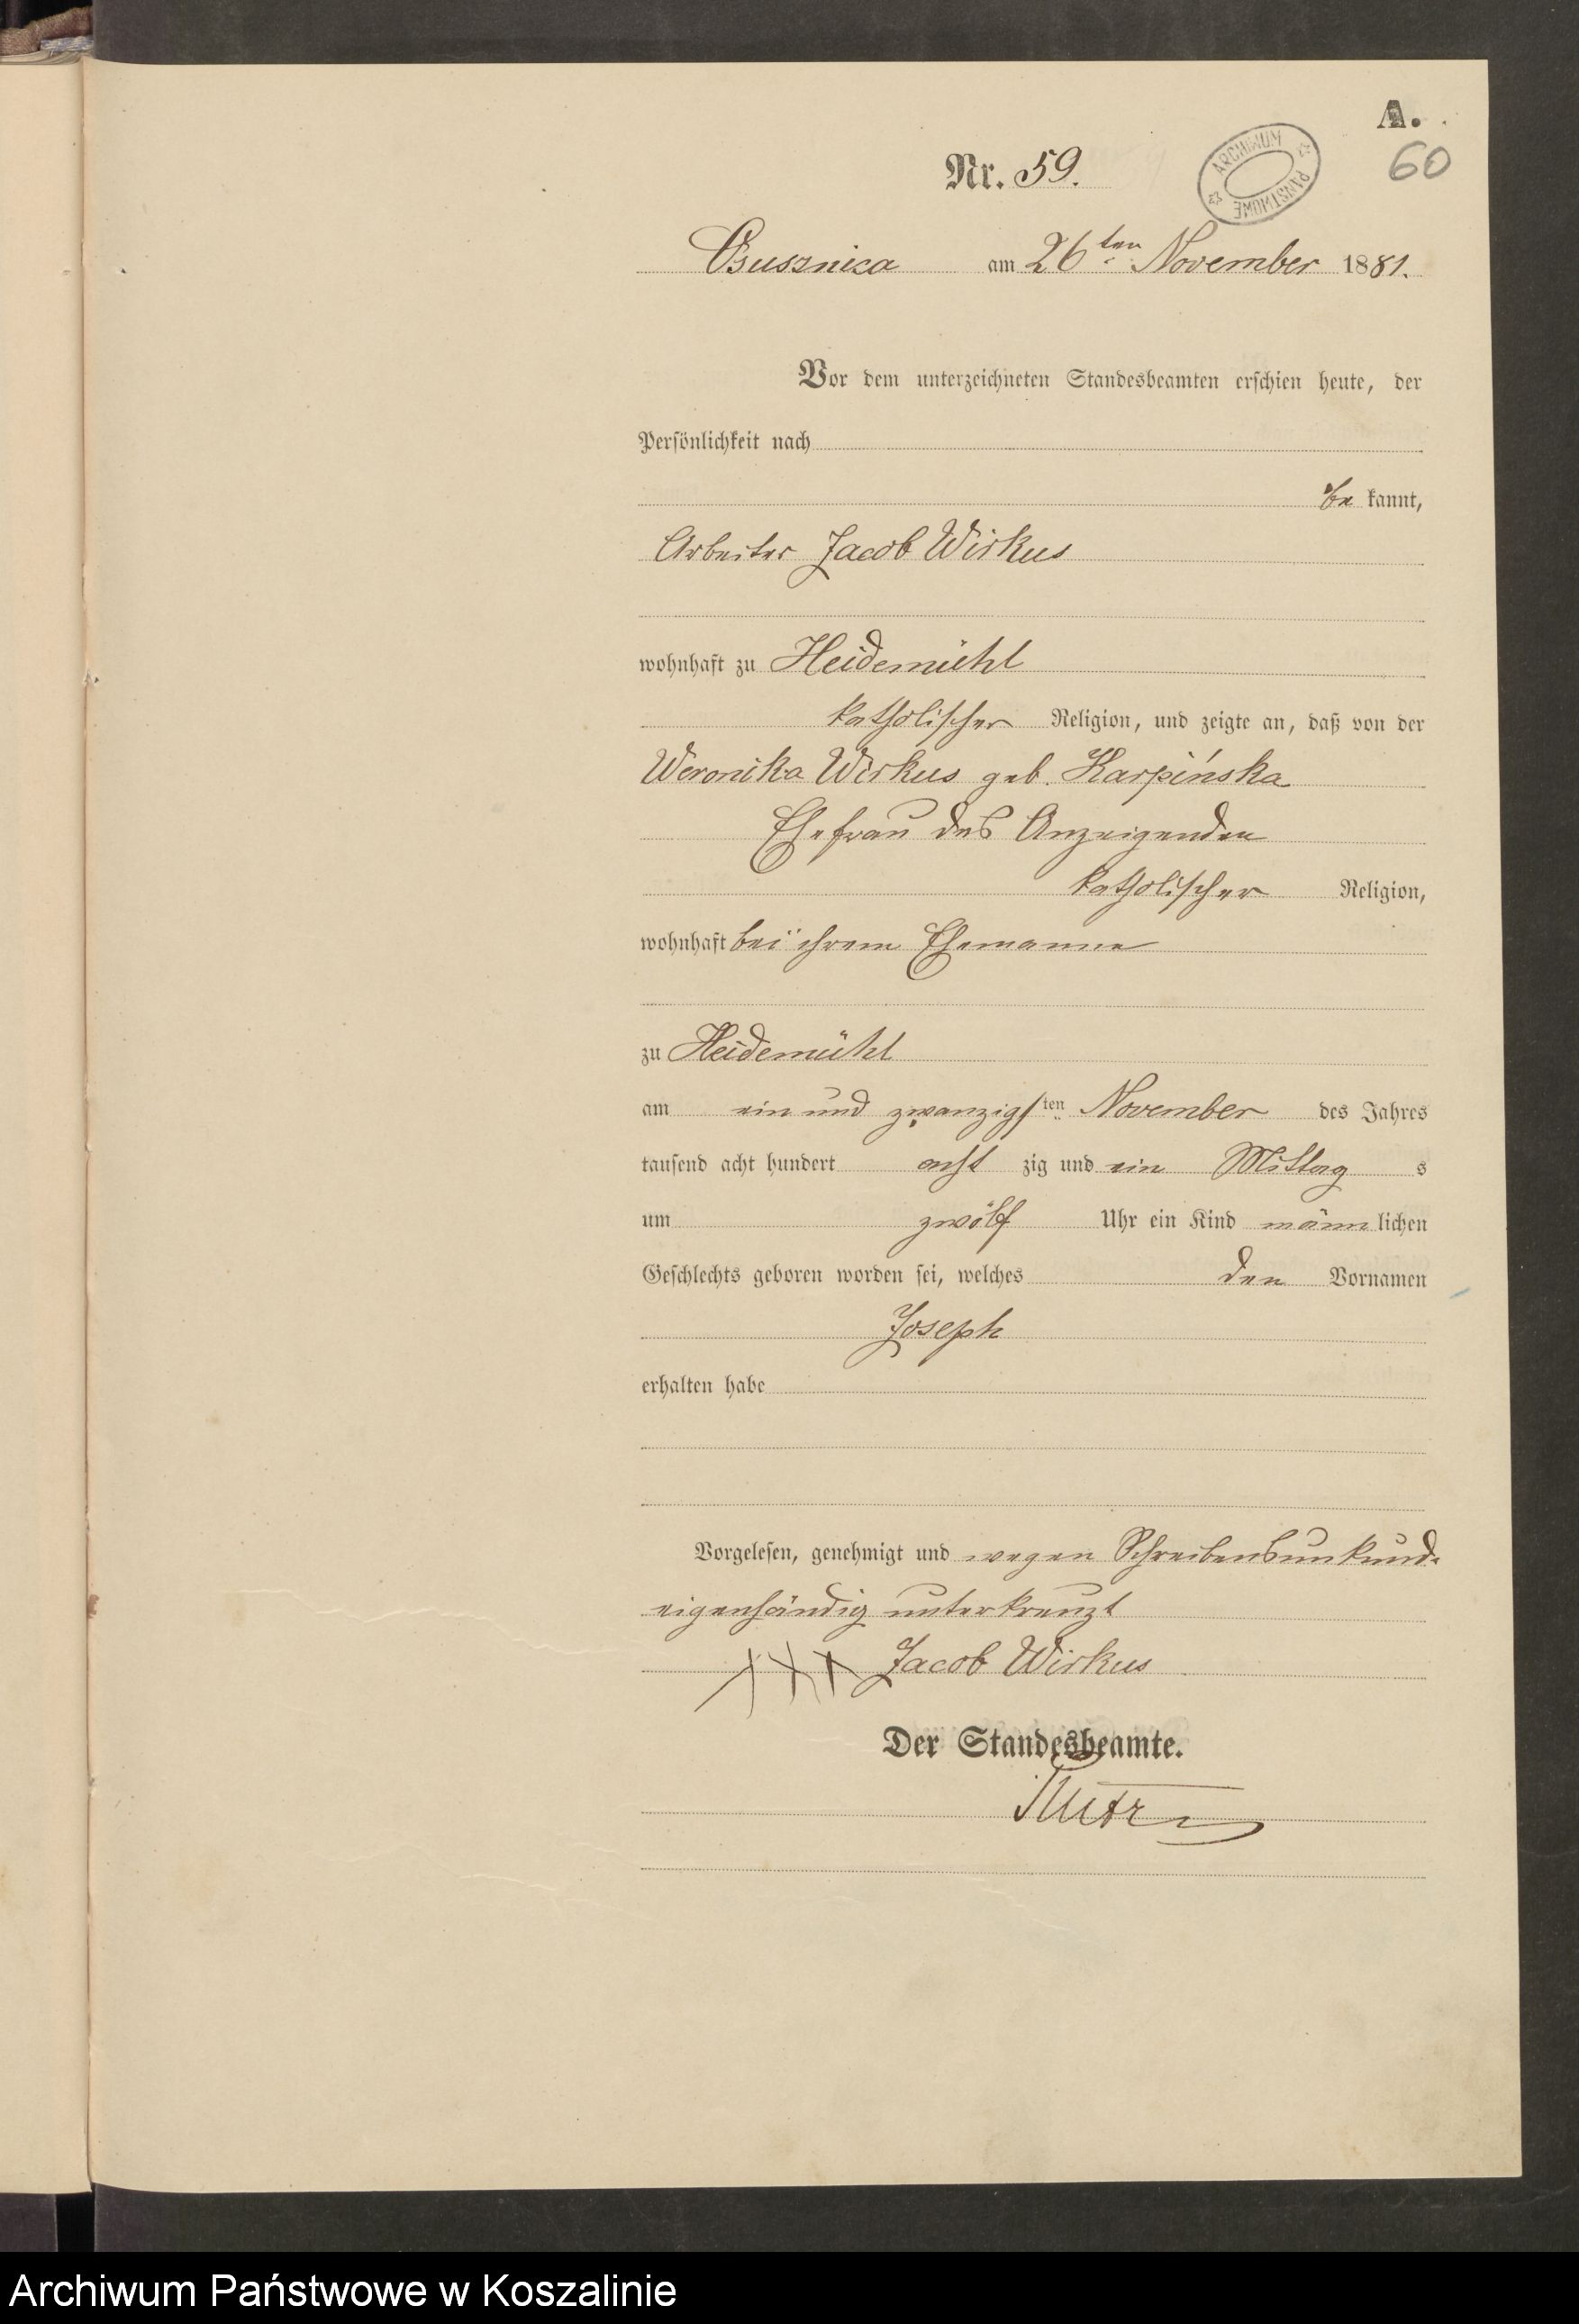 A.
60
Nr. 59.
ARCHIWUM PAŃSTWOWE
Ossusznica am 26ten November 1881.
Vor dem unterzeichneten Standesbeamten erschien heute, der
Persönlichkeit nach
be kannt,
Arbeiter Jacob Wirkus
wohnhaft zu Heidemühl
katholischer Religion, und zeigte an, daß von der
Weronika Wirkus geb. Karpińska
Ehefrau des Anzeigenden
katholischer Religion,
wohnhaft bei ihrem Ehemanne
zu Heidemühl
am ein und zwanzigsten November des Jahres
tausend acht hundert acht zig und ein Mittag s
um zwölf Uhr ein Kind männ lichen
Geschlechts geboren worden sei, welches den Vornamen
Joseph
erhalten habe
Vorgelesen, genehmigt und wegen Schreibensunkunde
eigenhändig unterkreuzt
+++ Jacob Wirkus
Der Standesbeamte.
Archiwum Państwowe w Koszalinie